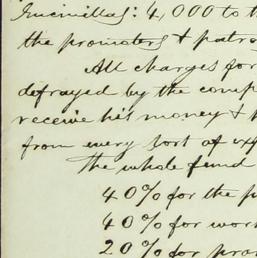 4,000 to th
the promoters & patro
All charges for
defrayed by the comp
receive his money &
from every sort of exp
The whole fund
40% for the p
40% for wor
20% for pro